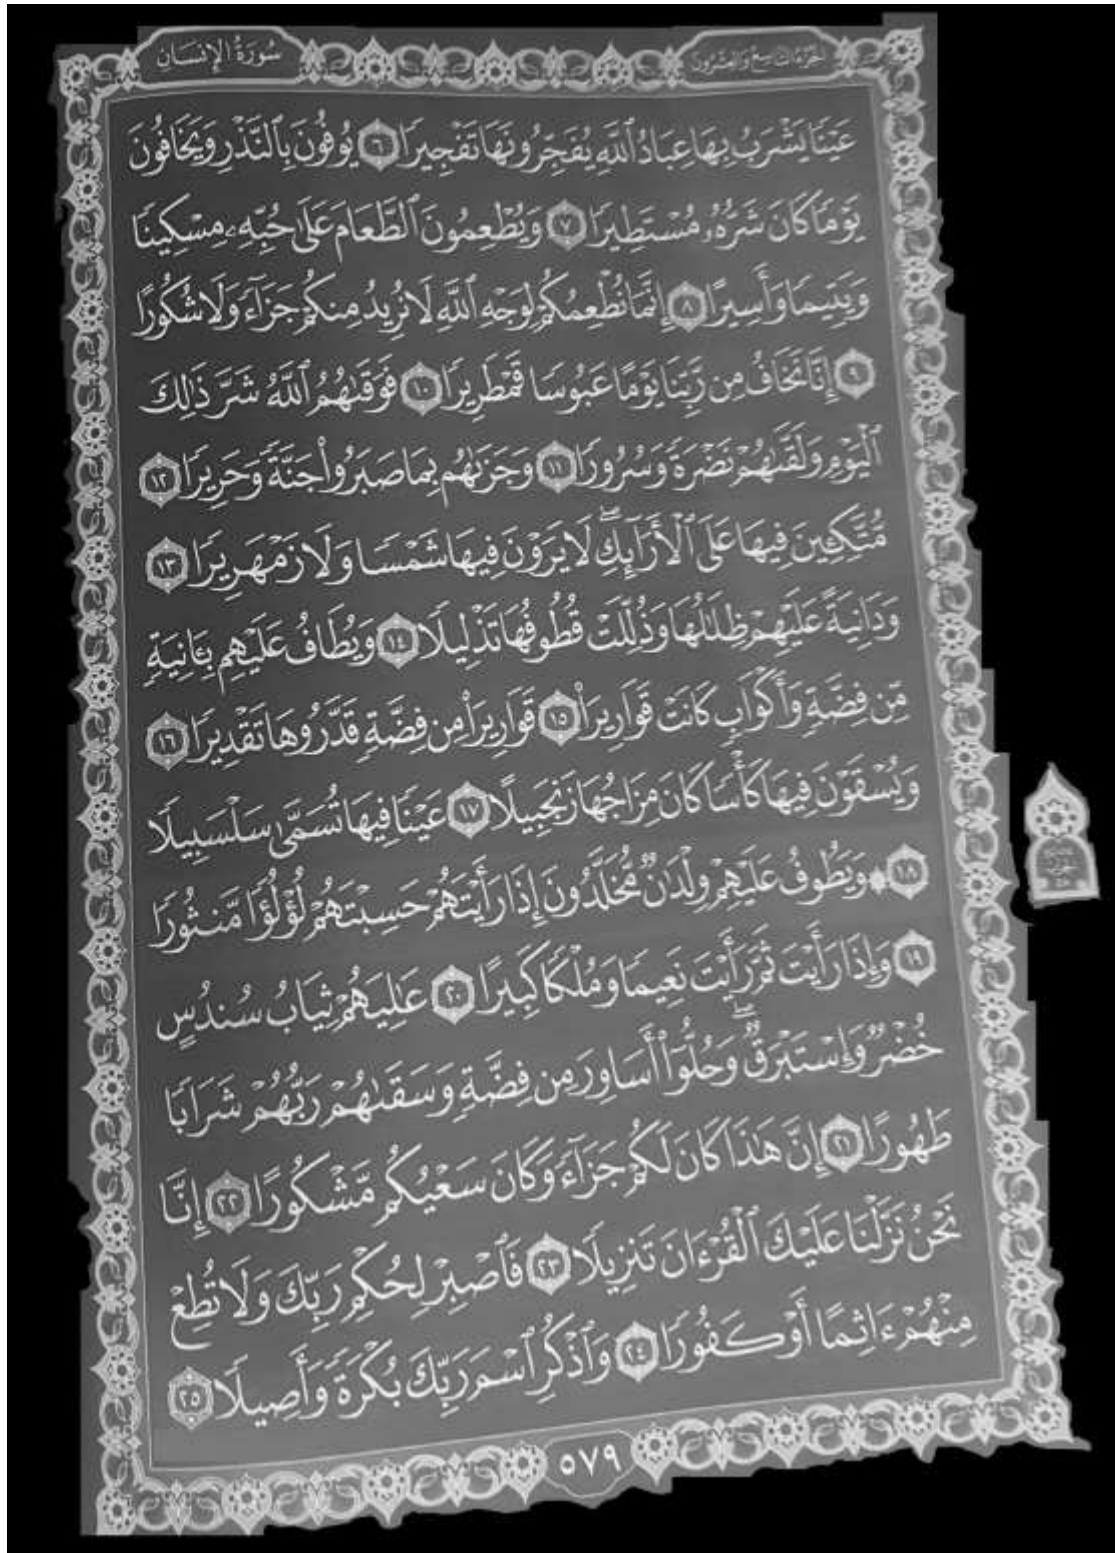 سُورَةُ الإِنسَانِ
الجُزْءُ التَّاسِعُ وَالعِشْرُونَ
عَيْنًا يَشْرَبُ بِهَا عِبَادُ ٱللَّهِ يُفَجِّرُونَهَا تَفْجِيرًا ٦ يُوفُونَ بِٱلنَّذْرِ وَيَخَافُونَ
يَوْمًا كَانَ شَرُّهُۥ مُسْتَطِيرًا ٧ وَيُطْعِمُونَ ٱلطَّعَامَ عَلَىٰ حُبِّهِۦ مِسْكِينًا
وَيَتِيمًا وَأَسِيرًا ٨ إِنَّمَا نُطْعِمُكُمْ لِوَجْهِ ٱللَّهِ لَا نُرِيدُ مِنكُمْ جَزَآءً وَلَا شُكُورًا
٩ إِنَّا نَخَافُ مِن رَّبِّنَا يَوْمًا عَبُوسًا قَمْطَرِيرًا ١٠ فَوَقَىٰهُمُ ٱللَّهُ شَرَّ ذَٰلِكَ
ٱلْيَوْمِ وَلَقَّىٰهُمْ نَضْرَةً وَسُرُورًا ١١ وَجَزَىٰهُم بِمَا صَبَرُوا۟ جَنَّةً وَحَرِيرًا ١٢
مُّتَّكِـِٔينَ فِيهَا عَلَى ٱلْأَرَآئِكِ ۖ لَا يَرَوْنَ فِيهَا شَمْسًا وَلَا زَمْهَرِيرًا ١٣
وَدَانِيَةً عَلَيْهِمْ ظِلَـٰلُهَا وَذُلِّلَتْ قُطُوفُهَا تَذْلِيلًا ١٤ وَيُطَافُ عَلَيْهِم بِـَٔانِيَةٍ
مِّن فِضَّةٍ وَأَكْوَابٍ كَانَتْ قَوَارِيرَا۠ ١٥ قَوَارِيرَا۟ مِن فِضَّةٍ قَدَّرُوهَا تَقْدِيرًا ١٦
وَيُسْقَوْنَ فِيهَا كَأْسًا كَانَ مِزَاجُهَا زَنجَبِيلًا ١٧ عَيْنًا فِيهَا تُسَمَّىٰ سَلْسَبِيلًا
١٨ ۞ وَيَطُوفُ عَلَيْهِمْ وِلْدَٰنٌ مُّخَلَّدُونَ إِذَا رَأَيْتَهُمْ حَسِبْتَهُمْ لُؤْلُؤًا مَّنثُورًا
١٩ وَإِذَا رَأَيْتَ ثَمَّ رَأَيْتَ نَعِيمًا وَمُلْكًا كَبِيرًا ٢٠ عَـٰلِيَهُمْ ثِيَابُ سُندُسٍ
خُضْرٌ وَإِسْتَبْرَقٌ ۖ وَحُلُّوٓا۟ أَسَاوِرَ مِن فِضَّةٍ وَسَقَىٰهُمْ رَبُّهُمْ شَرَابًا
طَهُورًا ٢١ إِنَّ هَـٰذَا كَانَ لَكُمْ جَزَآءً وَكَانَ سَعْيُكُم مَّشْكُورًا ٢٢ إِنَّا
نَحْنُ نَزَّلْنَا عَلَيْكَ ٱلْقُرْءَانَ تَنزِيلًا ٢٣ فَٱصْبِرْ لِحُكْمِ رَبِّكَ وَلَا تُطِعْ
مِنْهُمْ ءَاثِمًا أَوْ كَفُورًا ٢٤ وَٱذْكُرِ ٱسْمَ رَبِّكَ بُكْرَةً وَأَصِيلًا ٢٥
٥٧٩